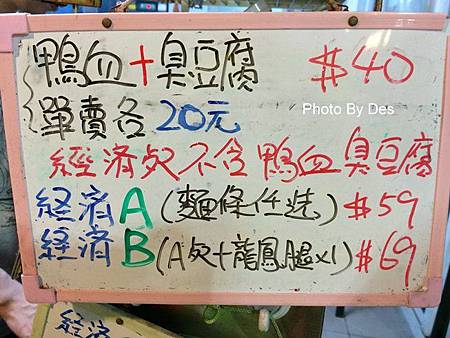 鴨血+臭豆腐 $40
單賣各20元
Photo By Des
經濟処不含鴨血臭豆腐
経济A(麵條任选)$59
経済B(A処+龍鳳腿x1)$69
経済